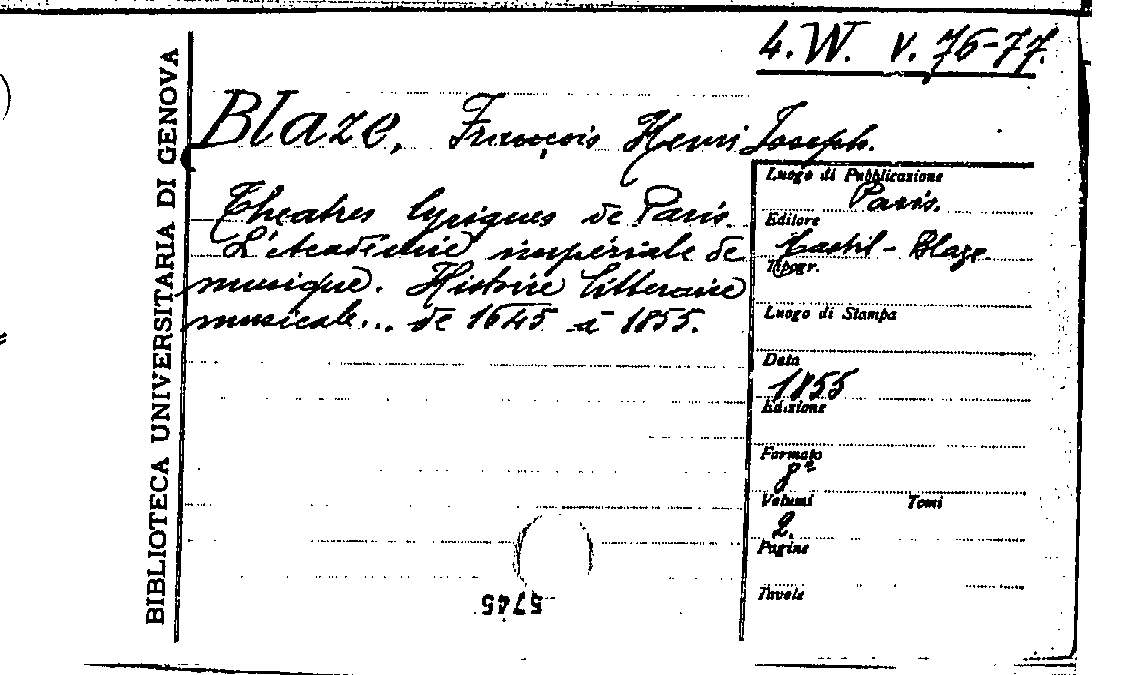 4. W. V. 76-77.
BIBLIOTECA UNIVERSITARIA DI GENOVA
Blaze, François Henri Joseph.
Theatres lyriques de Paris.
L'Academie impériale de
musique. Histoire litteraire
musicale... de 1645 à 1855.
Luogo di Pubblicazione
Paris.
Editore
Castil-Blaze
Tipogr.
Luogo di Stampa
Data
1855
Edizione
Formato
8°
Volumi Tomi
2.
Pagine
Tavole
5745